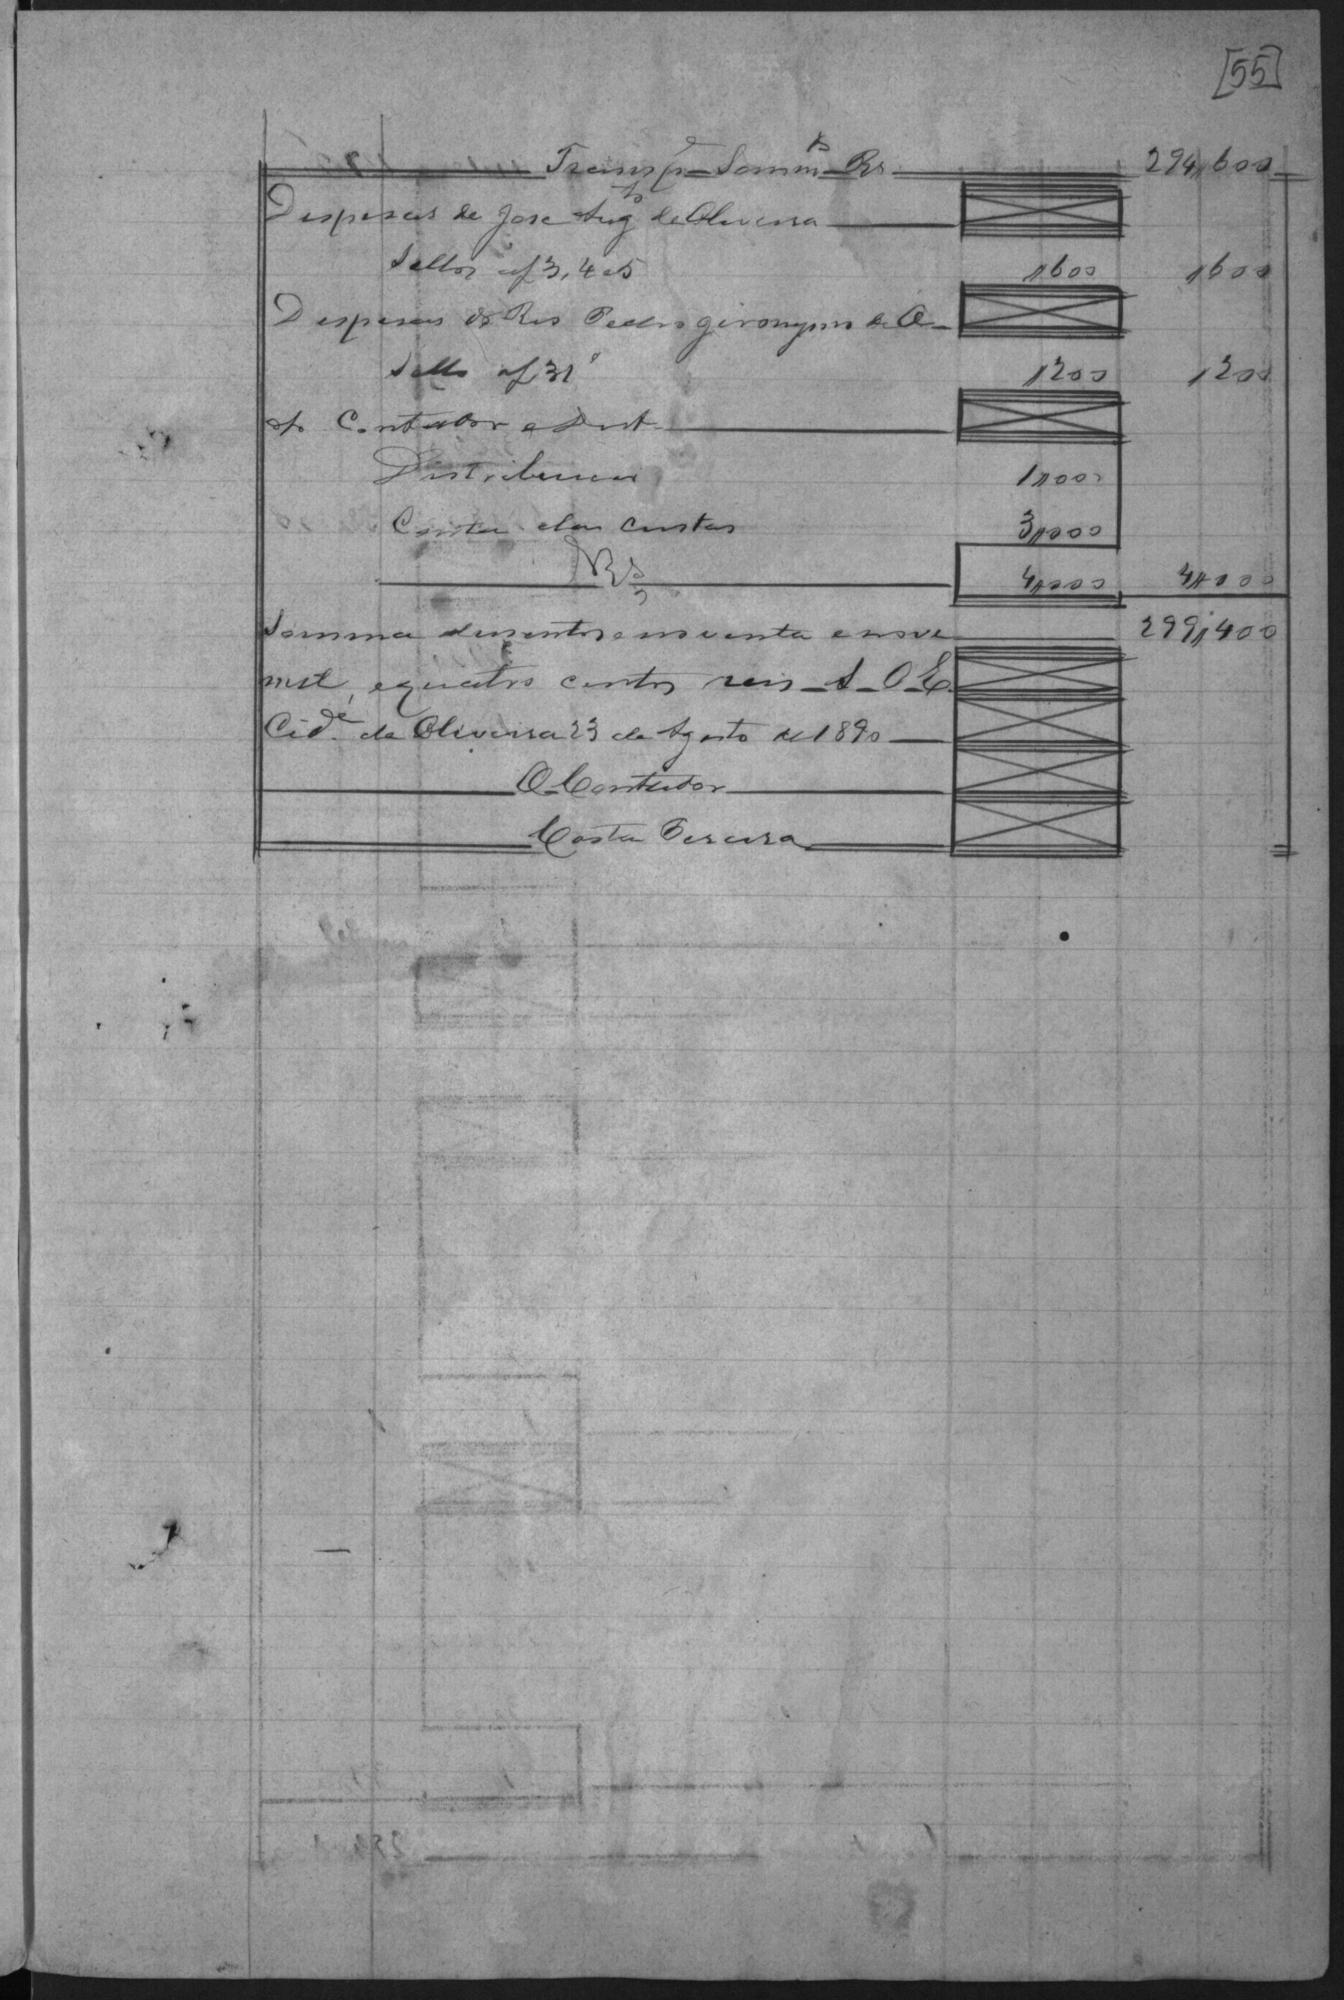 [55]
Transpe Somma Rs 294,600
Despesas de Jose Augto de Oliveira
Sellos af 3, 4 e 5 ,600 ,600
Despesas do Reo Pedro Gironymo de O
Sello af 31 ,200 ,200
Ao Contador e Dist
Distribuiçao 1,000
Conta das custas 3,000
Rs 4,000 4,000
Somma dusentos e noventa e nove 299,400
mil, e quatro centos reis S. O. E.
Cide de Oliveira 23 de Agosto de 1890
O Contador
Costa Pereira